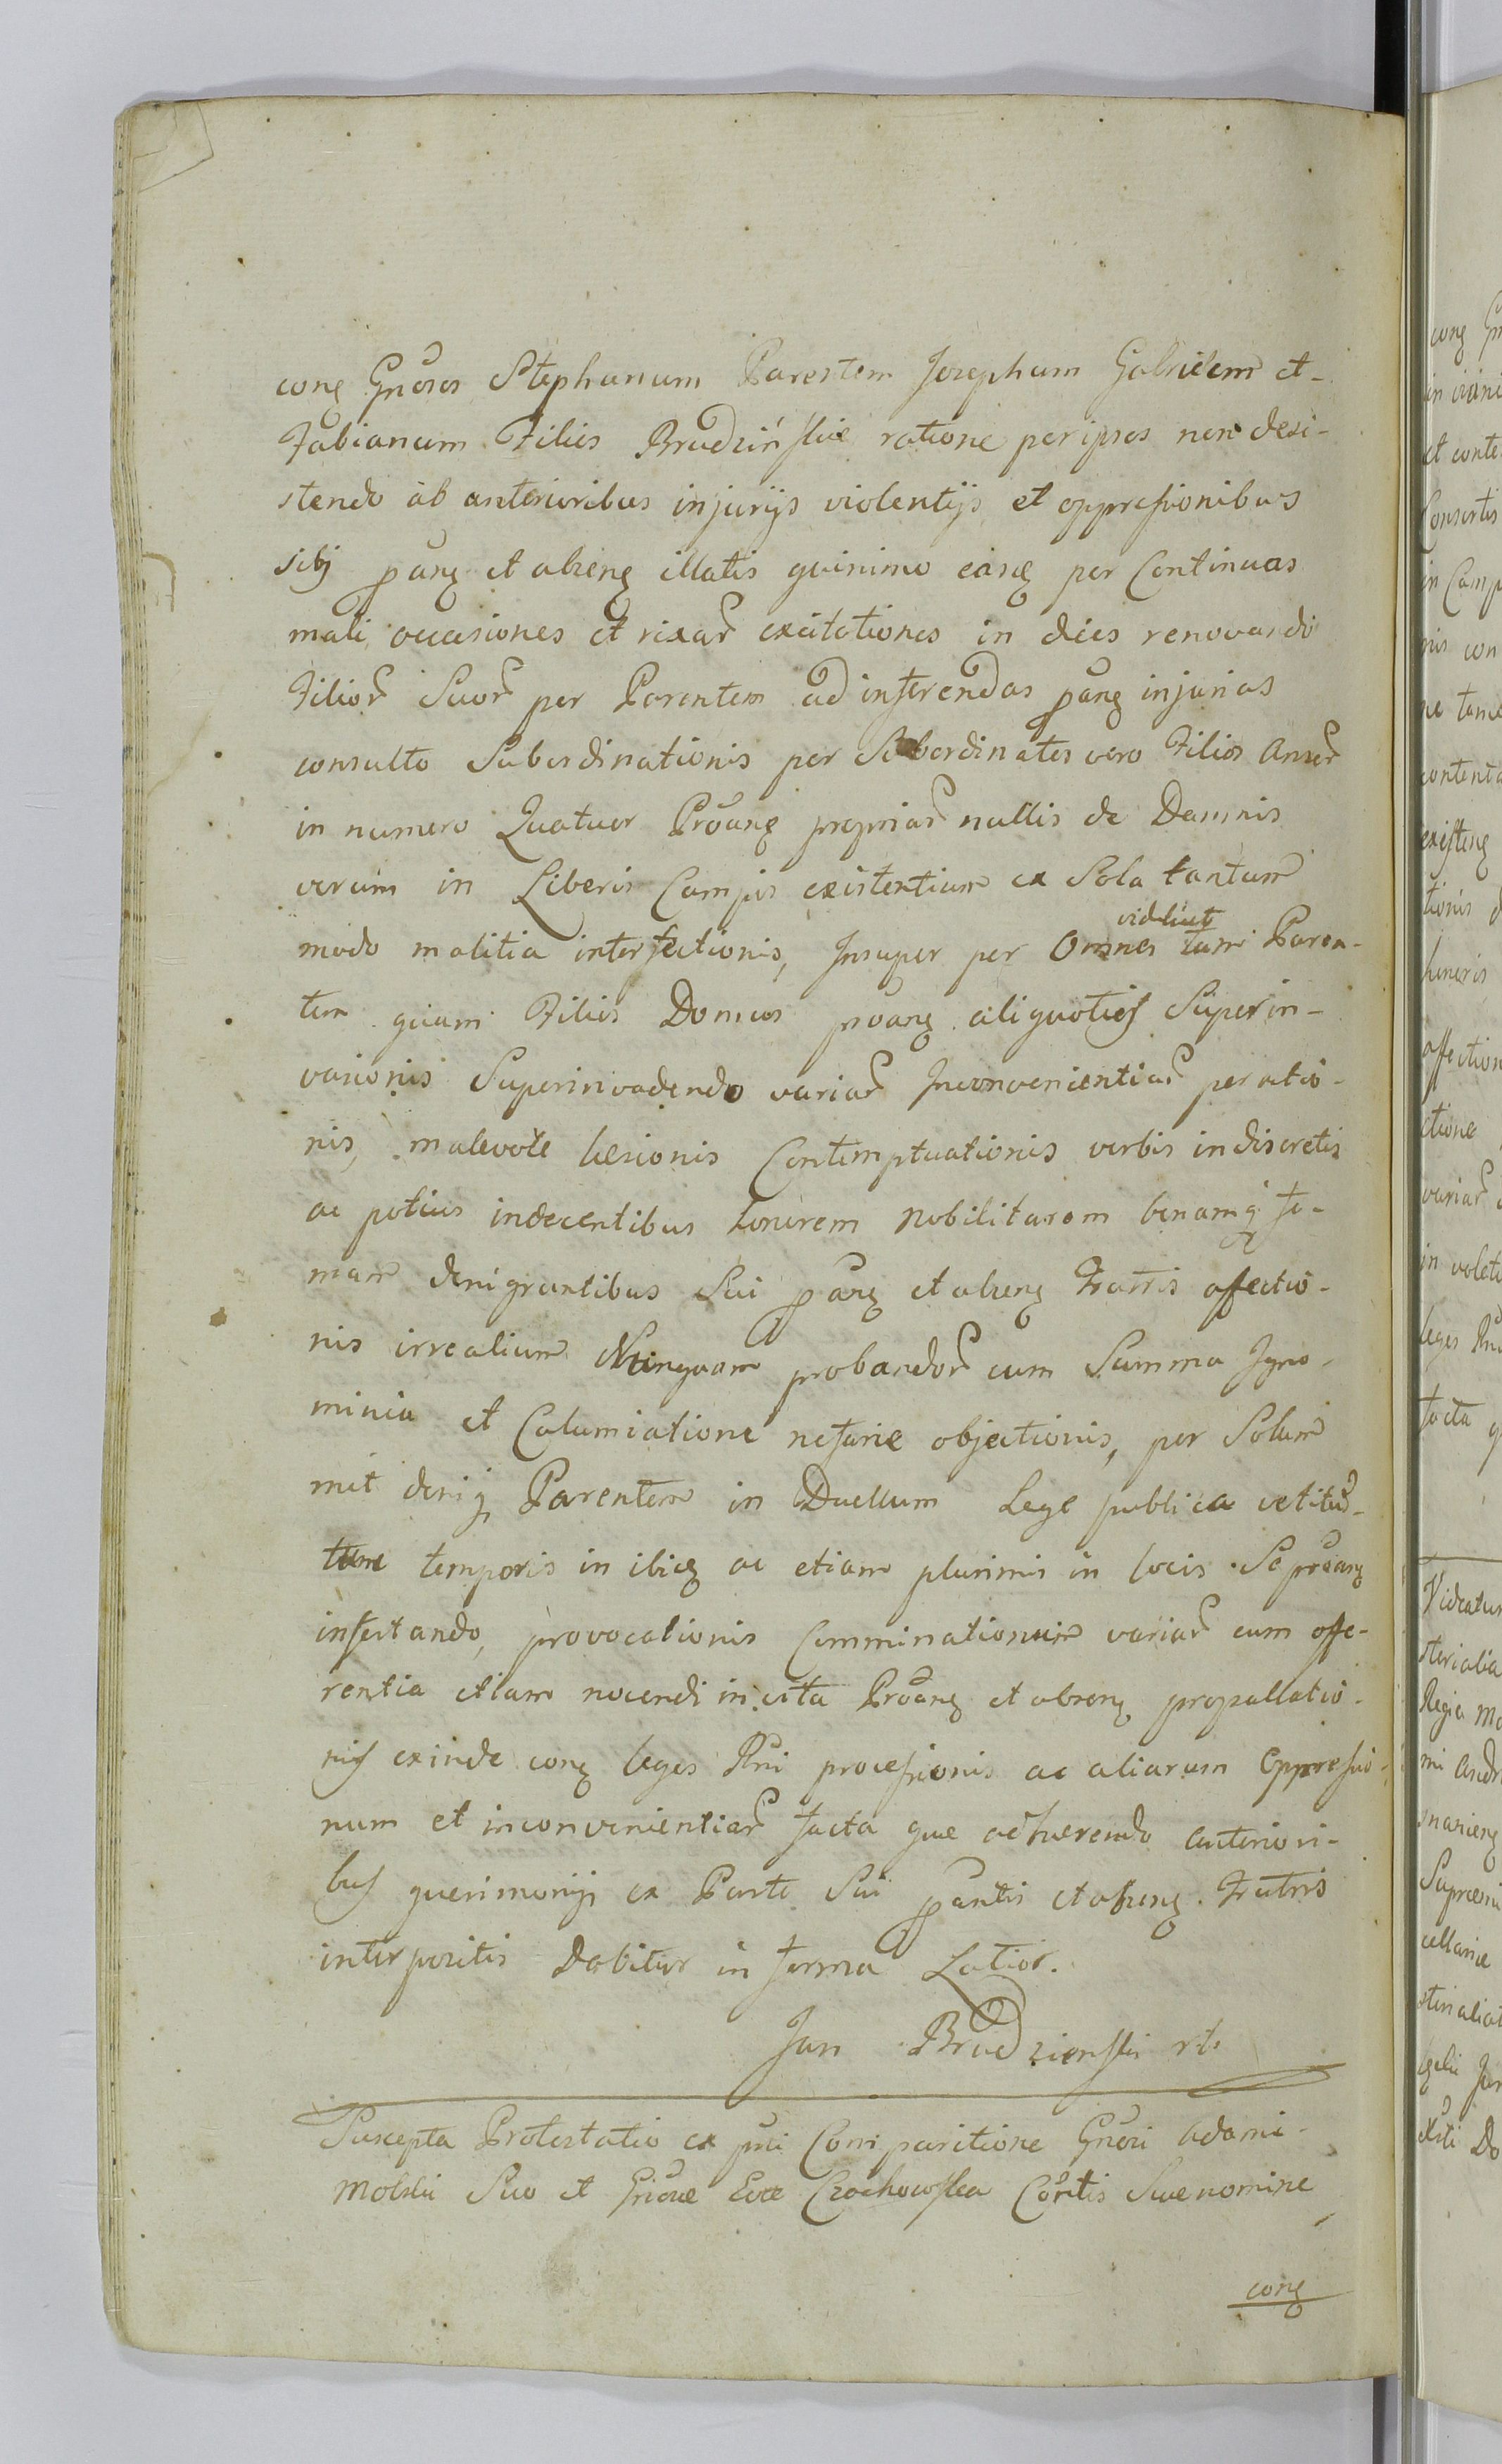 cong Gnosos Stephanum Parentem Josephum Gabrielem et-
Fabianum Filios Brudzińskie ratione per ipsos non desi-
stendo ab anterioribus injurijs violentijs et oppressionibus
sibj pang et abseng illatis quinimo easq per Continuas
mali occasiones et rixar excitationes in dies renovando
Filior Suor per Parentem ad inferendas pang injurias
consulto Subordinationis per Subordinatos vero Filios Anser
in numero Quatuor Proang propriar nullis de Damnis
verum in Liberis Campis existentium ex Sola tantum
modo malitia interfectionis, Insuper per Omnes videlicet tam Paren-
tem quam Filios Domus proang aliquoties Superin-
vasionis Superinvadendo variar Inconvenientiar peractio-
nis, malevole lesionis Contemptuationis verbis indiscretis
ac potius indecentibus honorem Nobilitarem bonamq fa-
mam denigrantibus Sui pang et abseng Fratris affectio-
nis irrealium Nunquam probandor cum Summa Igno-
minia et Calumiatione nefarie objectionis, per Solum
met deniq Parentem in Duellum Lege publica vetitum-
tum temporis in ibiq ac etiam plurimis in locis Se proang
infestando, provocationis Comminationum variar cum offe-
rentia etiam nocendi in vita Proang et abseng propallatio-
nis exinde cong leges Rni processionis ac aliarum Oppressio-
num et inconvenientiar facta que adhuerendo anteriori-
bus querimonijs ex Parte Sui pantis et abseng Fratris
interpositis Dabitur in forma Latior.
Jan Brudzienski rt.
Suscepta Protestatio ex pnti Comparitione Gnosi Adami-
Molski Suo et Gnose Eve Czochowska Contis Sue nomine
cong